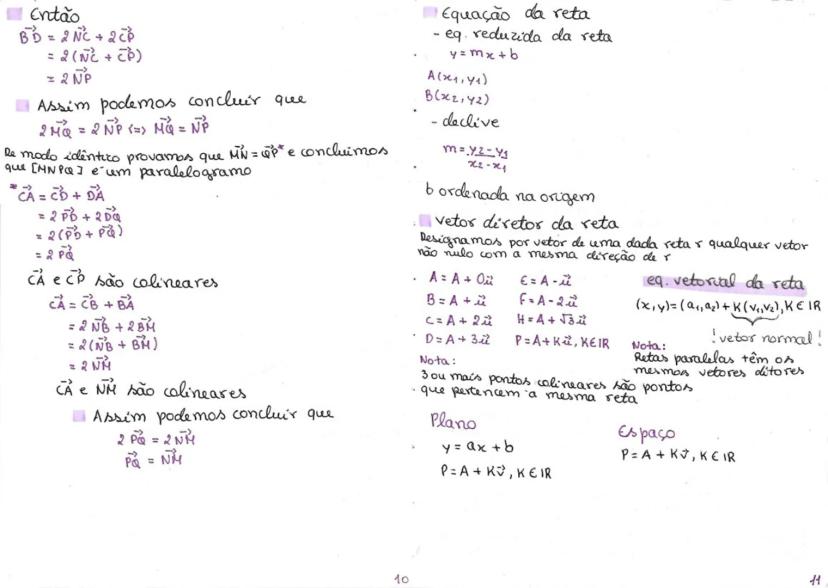 Então
B⃗D = 2N⃗C + 2C⃗P
= 2(N⃗C + C⃗P)
= 2N⃗P
Assim podemos concluir que
2M⃗Q = 2N⃗P <=> M⃗Q = N⃗P
De modo idêntico provamos que M⃗N = Q⃗P* e concluimos
que [MNPQ] é um paralelogramo
*C⃗A = C⃗D + D⃗A
= 2P⃗D + 2D⃗Q
= 2(P⃗D + P⃗Q)
= 2P⃗Q
C⃗A e C⃗P são colineares
C⃗A = C⃗B + B⃗A
= 2N⃗B + 2B⃗M
= 2(N⃗B + B⃗M)
= 2N⃗M
C⃗A e N⃗M são colineares
Assim podemos concluir que
2P⃗Q = 2N⃗M
P⃗Q = N⃗M
10
Equação da reta
- eq. reduzida da reta
y = mx + b
A(x1, y1)
B(x2, y2)
- declive
m = y2 - y1
x2 - x1
b ordenada na origem
vetor diretor da reta
Designamos por vetor de uma dada reta r qualquer vetor
não nulo com a mesma direção de r
A = A + 0u⃗ E = A - u⃗
B = A + u⃗ F = A - 2u⃗
C = A + 2u⃗ H = A + √3u⃗
D = A + 3u⃗ P = A + Ku⃗, K∈IR
eq. vetorial da reta
(x, y) = (a1, a2) + K(v1, v2), K∈IR
! vetor normal !
Nota:
Retas paralelas têm os
mesmos vetores ditores
Nota:
3 ou mais pontos colineares são pontos
que pertencem a mesma reta
Plano
y = ax + b
P = A + Kv⃗, K∈IR
Espaço
P = A + Kv⃗, K∈IR
11